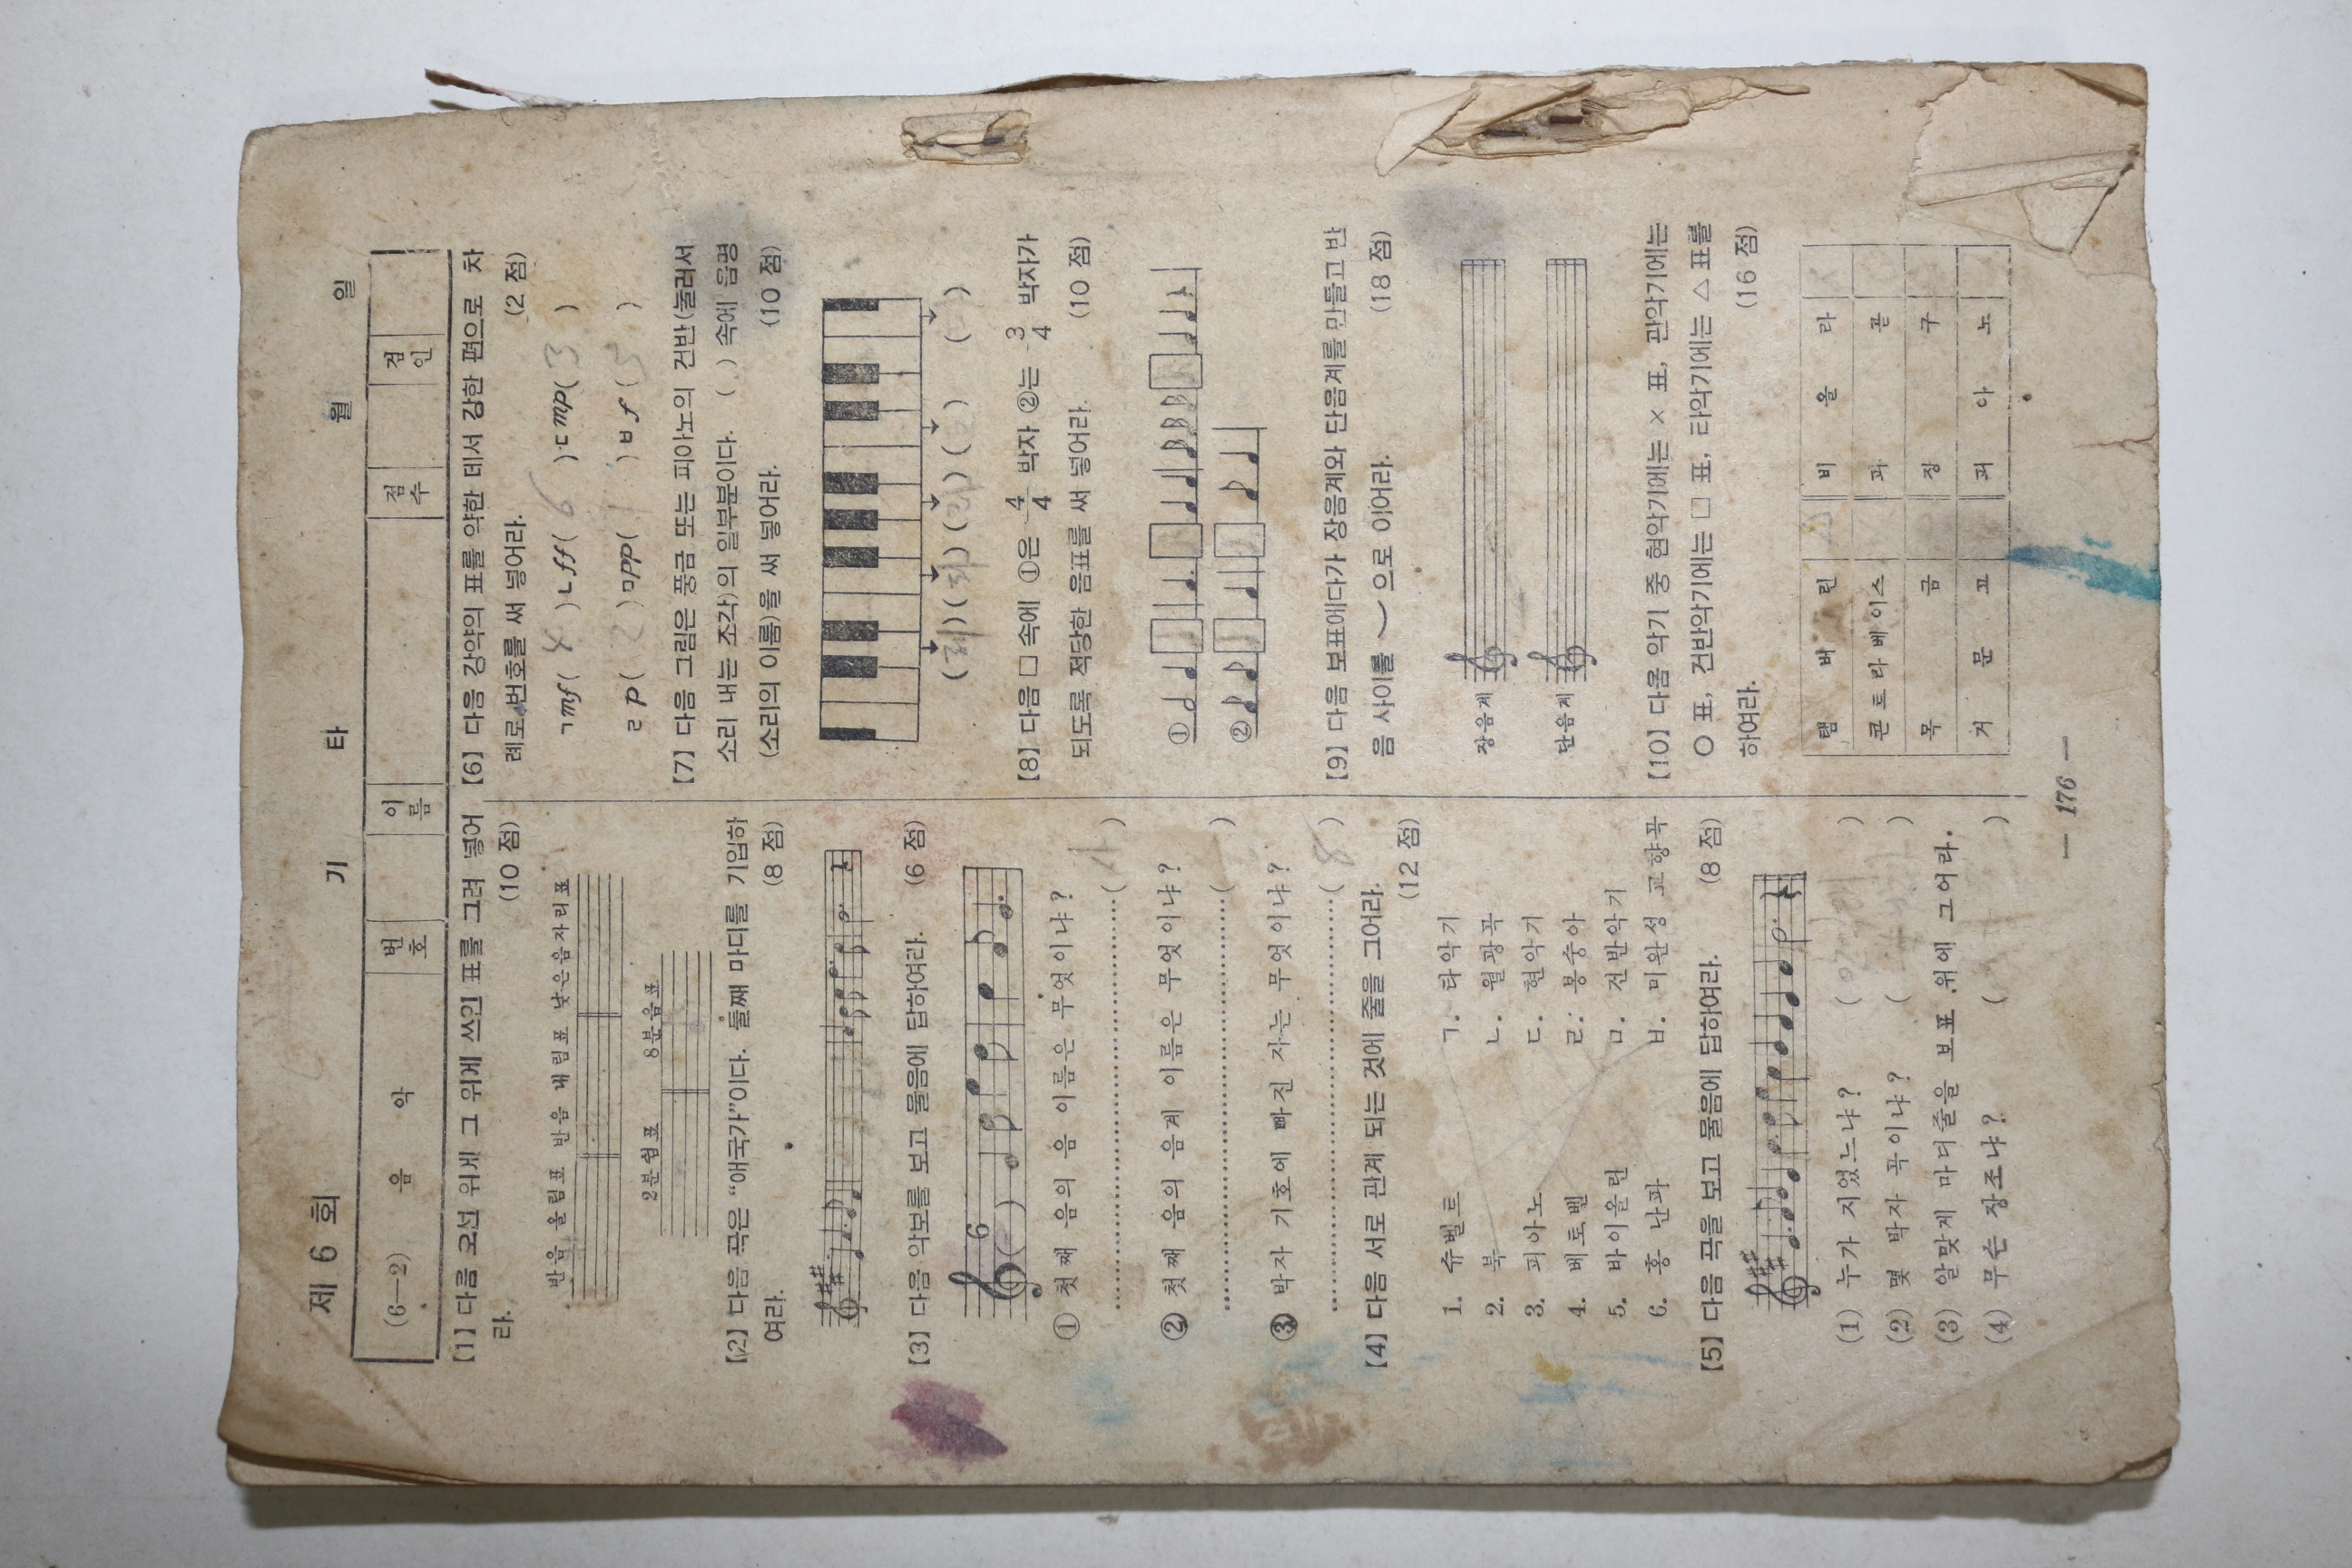 제 6 회 기 타 월 일
(6—2) 음 악 번호 이름 점수 검인
【1】 다음 오선 위에 그 위에 쓰인 표를 그려 넣어
라. (10 점)
반음 올림표 반음 내림표 낮은음자리표
2분쉼표 8분음표
【2】 다음 곡은 “애국가”이다. 둘째 마디를 기입하
여라. (8 점)
【3】 다음 악보를 보고 물음에 답하여라. (6 점)
6
( )
① 첫째 음의 음 이름은 무엇이냐?
( 사 )
② 첫째 음의 음계 이름은 무엇이냐?
( )
③ 박자 기호에 빠진 자는 무엇이냐?
( 8 )
【4】 다음 서로 관계 되는 것에 줄을 그어라.
(12 점)
1. 슈벨트 ㄱ. 타악기
2. 북 ㄴ. 월광곡
3. 피아노 ㄷ. 현악기
4. 베토벤 ㄹ. 봉숭아
5. 바이올린 ㅁ. 건반악기
6. 홍 난파 ㅂ. 미완성 교향곡
【5】 다음 곡을 보고 물음에 답하여라. (8 점)
(1) 누가 지었느냐? ( )
(2) 몇 박자 곡이냐? ( )
(3) 알맞게 마디줄을 보표 위에 그어라.
(4) 무슨 장조냐? ( )
【6】 다음 강약의 표를 약한 데서 강한 편으로 차
례로 번호를 써 넣어라. (2 점)
ㄱ mf ( 4 ) ㄴ ff ( 6 ) ㄷ mp ( 3 )
ㄹ p ( 2 ) ㅁ pp ( 1 ) ㅂ f ( 5 )
【7】 다음 그림은 풍금 또는 피아노의 건반(눌러서
소리 내는 조각)의 일부분이다. ( ) 속에 음명
(소리의 이름)을 써 넣어라. (10 점)
【8】 다음 □ 속에 ①은 4/4 박자 ②는 3/4 박자가
되도록 적당한 음표를 써 넣어라. (10 점)
①
②
【9】 다음 보표에다가 장음계와 단음계를 만들고 반
음 사이를 ⌣ 으로 이어라. (18 점)
장음계
단음계
【10】 다음 악기 중 현악기에는 × 표, 관악기에는
○ 표, 건반악기에는 □ 표, 타악기에는 △ 표를
하여라. (16 점)
탬 버 린 비 올 라
콘트라베이스 파 곧
목 금 장 구
거 문 고 피 아 노
— 176 —